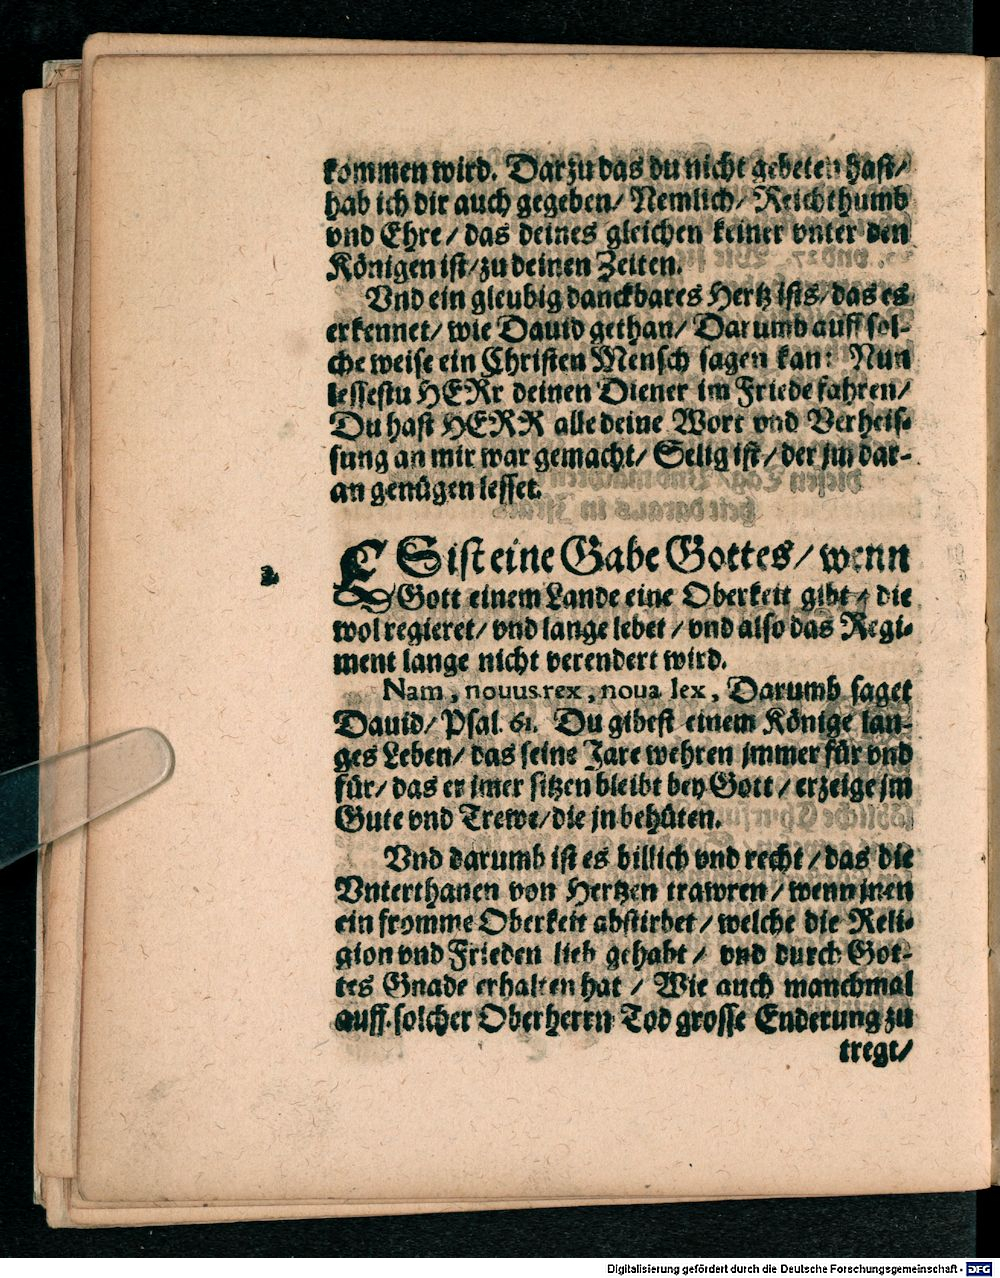 kommen wird. Darzu das du nicht gebeten hast/
hab ich dir auch gegeben/ Nemlich/ Reichthumb
vnd Ehre/ das deines gleichen keiner vnter den
Königen ist/ zu deinen Zeiten.
Vnd ein gleubig danckbares Hertz ists/ das es
erkennet/ wie Dauid gethan/ Darumb auff sol-
che weise ein Christen Mensch sagen kan: Nun
lessestu HERr deinen Diener im Friede fahren/
Du hast HERR alle deine Wort vnd Verheis-
sung an mir war gemacht/ Selig ist/ der jm dar-
an genügen lesset.
2.
ES ist eine Gabe Gottes/ wenn
Gott einem Lande eine Oberkeit gibt/ die
wol regieret/ vnd lange lebet/ vnd also das Regi-
ment lange nicht verendert wird.
Nam, nouus rex, noua lex, Darumb saget
Dauid/ Psal. 61. Du gibest einem Könige lan-
ges Leben/ das seine Jare wehren jmmer für vnd
für/ das er jmer sitzen bleibt bey Gott/ erzeige jm
Güte vnd Trewe/ die jn behüten.
Vnd darumb ist es billich vnd recht/ das die
Vnterthanen von Hertzen trawren/ wenn jnen
ein fromme Oberkeit abstirbet/ welche die Reli-
gion vnd Frieden lieb gehabt/ vnd durch Got-
tes Gnade erhalten hat/ Wie auch manchmal
auff solcher Oberherrn Tod grosse Enderung zu
tregt/
Digitalisierung gefördert durch die Deutsche Forschungsgemeinschaft - DFG